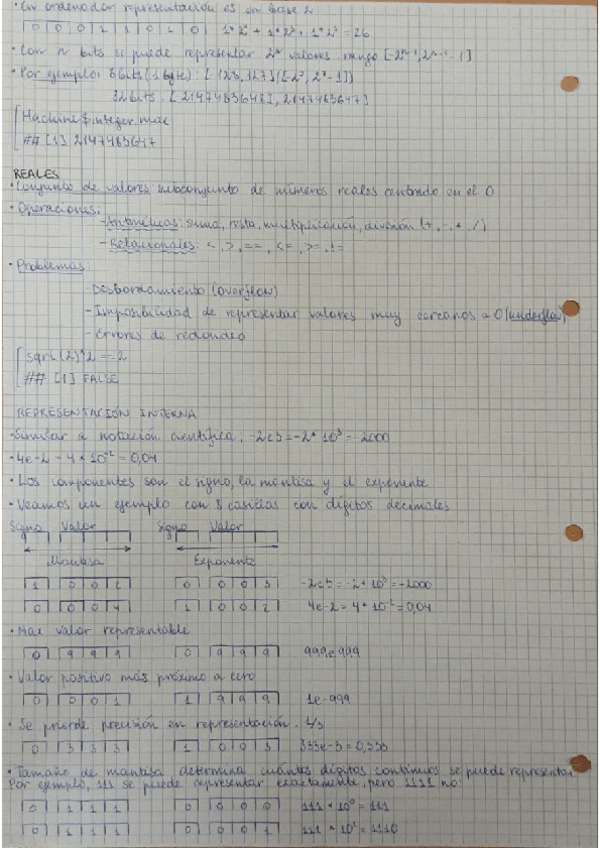 · En ordenador representación es en base 2
0 0 0 1 1 0 1 0 1*2⁴ + 1*2³ + 1*2¹ = 26
· Con n bits se puede representar 2ⁿ valores rango [-2ⁿ⁻¹, 2ⁿ⁻¹-1]
· Por ejemplo: 8bits (1 byte): [-128, 127] ([-2⁷, 2⁷-1])
32bits: [2147483648], 2147483647]
.Machine$integer.max
## [1] 2147483647
REALES
· Conjunto de valores subconjunto de números reales centrado en el 0
· Operaciones:
- Aritméticas: suma, resta, multiplicación, división (+, -, *, /)
- Relacionales: <, >, ==, <=, >=, !=
· Problemas:
- Desbordamiento (overflow)
- Imposibilidad de representar valores muy cercanos a 0 (underflow)
- Errores de redondeo
sqrt(2)^2 == 2
## [1] FALSE
REPRESENTACIÓN INTERNA
· Similar a notación científica: -2e3 = -2 * 10³ = -2000
· 4e-2 = 4 * 10⁻² = 0,04
· Los componentes son el signo, la mantisa y el exponente
· Veamos un ejemplo con 8 casillas con dígitos decimales
Signo Valor Signo Valor
Mantisa Exponente
1 0 0 2 0 0 0 3 -2e3 = -2 * 10³ = -2000
0 0 0 4 1 0 0 2 4e-2 = 4 * 10⁻² = 0,04
· Max valor representable
0 9 9 9 0 9 9 9 999e999
· Valor positivo más próximo a cero
0 0 0 1 1 9 9 9 1e-999
· Se pierde precisión en representación. 1/3
0 3 3 3 1 0 0 3 333e-3 = 0,333
· Tamaño de mantisa determina cuántos dígitos continuos se puede representar
Por ejemplo, 111 se puede representar exactamente, pero 1111 no:
0 1 1 1 0 0 0 0 111 * 10⁰ = 111
0 1 1 1 0 0 0 1 111 * 10¹ = 1110